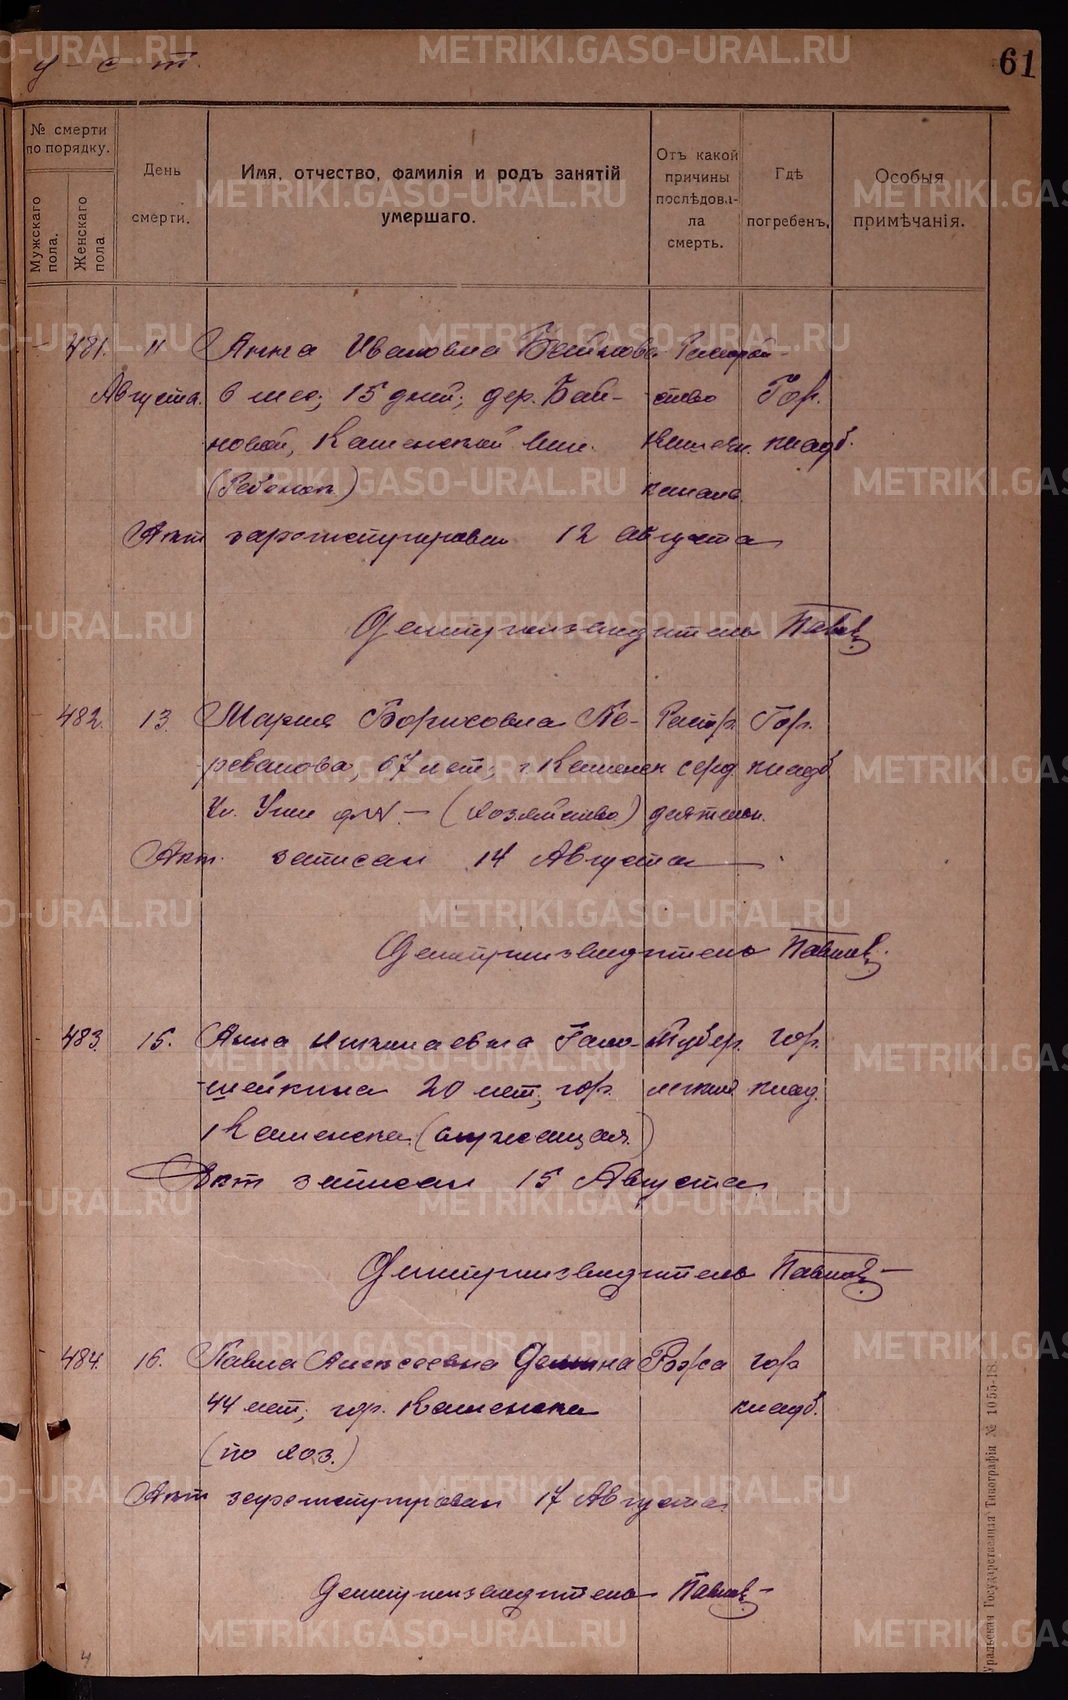 у - с - т.
61
№ смерти
по порядку.
Мужскаго
пола.
Женскаго
пола
День
смерти.
Имя, отчество, фамилія и родъ занятій
умершаго.
Отъ какой
причины
послѣдова-
ла
смерть.
Гдѣ
погребенъ.
Особыя
примѣчанія.
481. 11 Анна Ивановна Байнова
Августа. 6 мес; 15 дней; дер. Бай- Гор.
новой, Каменской кишечн. кладб.
(Ребенок) канала.
Акт зарегистрирован 12 августа
Делопроизводитель Павлов
482. 13. Мария Борисовна Пе- Гор.
ревалова, 67 лет; г. Каменск серд кладб
(хозяйство) деятельн.
Акт. записан 14 Августа
Делопроизводитель Павлов.
483. 15. Анна Николаевна Голо- Тубер. гор.
шейкина 20 лет; гор. легких клад.
Каменска (служащая.)
Акт записан 15 Августа
Делопроизводитель Павлов
484. 16. Павла Алексеевна Рожа гор
44 лет; гор. Каменска кладб.
(по хоз.)
Акт зарегистрирован 17 Августа
Делопроизводитель Павлов
Уральская Государственная Типографія № 1055-18.
4
METRIKI.GASO-URAL.RU